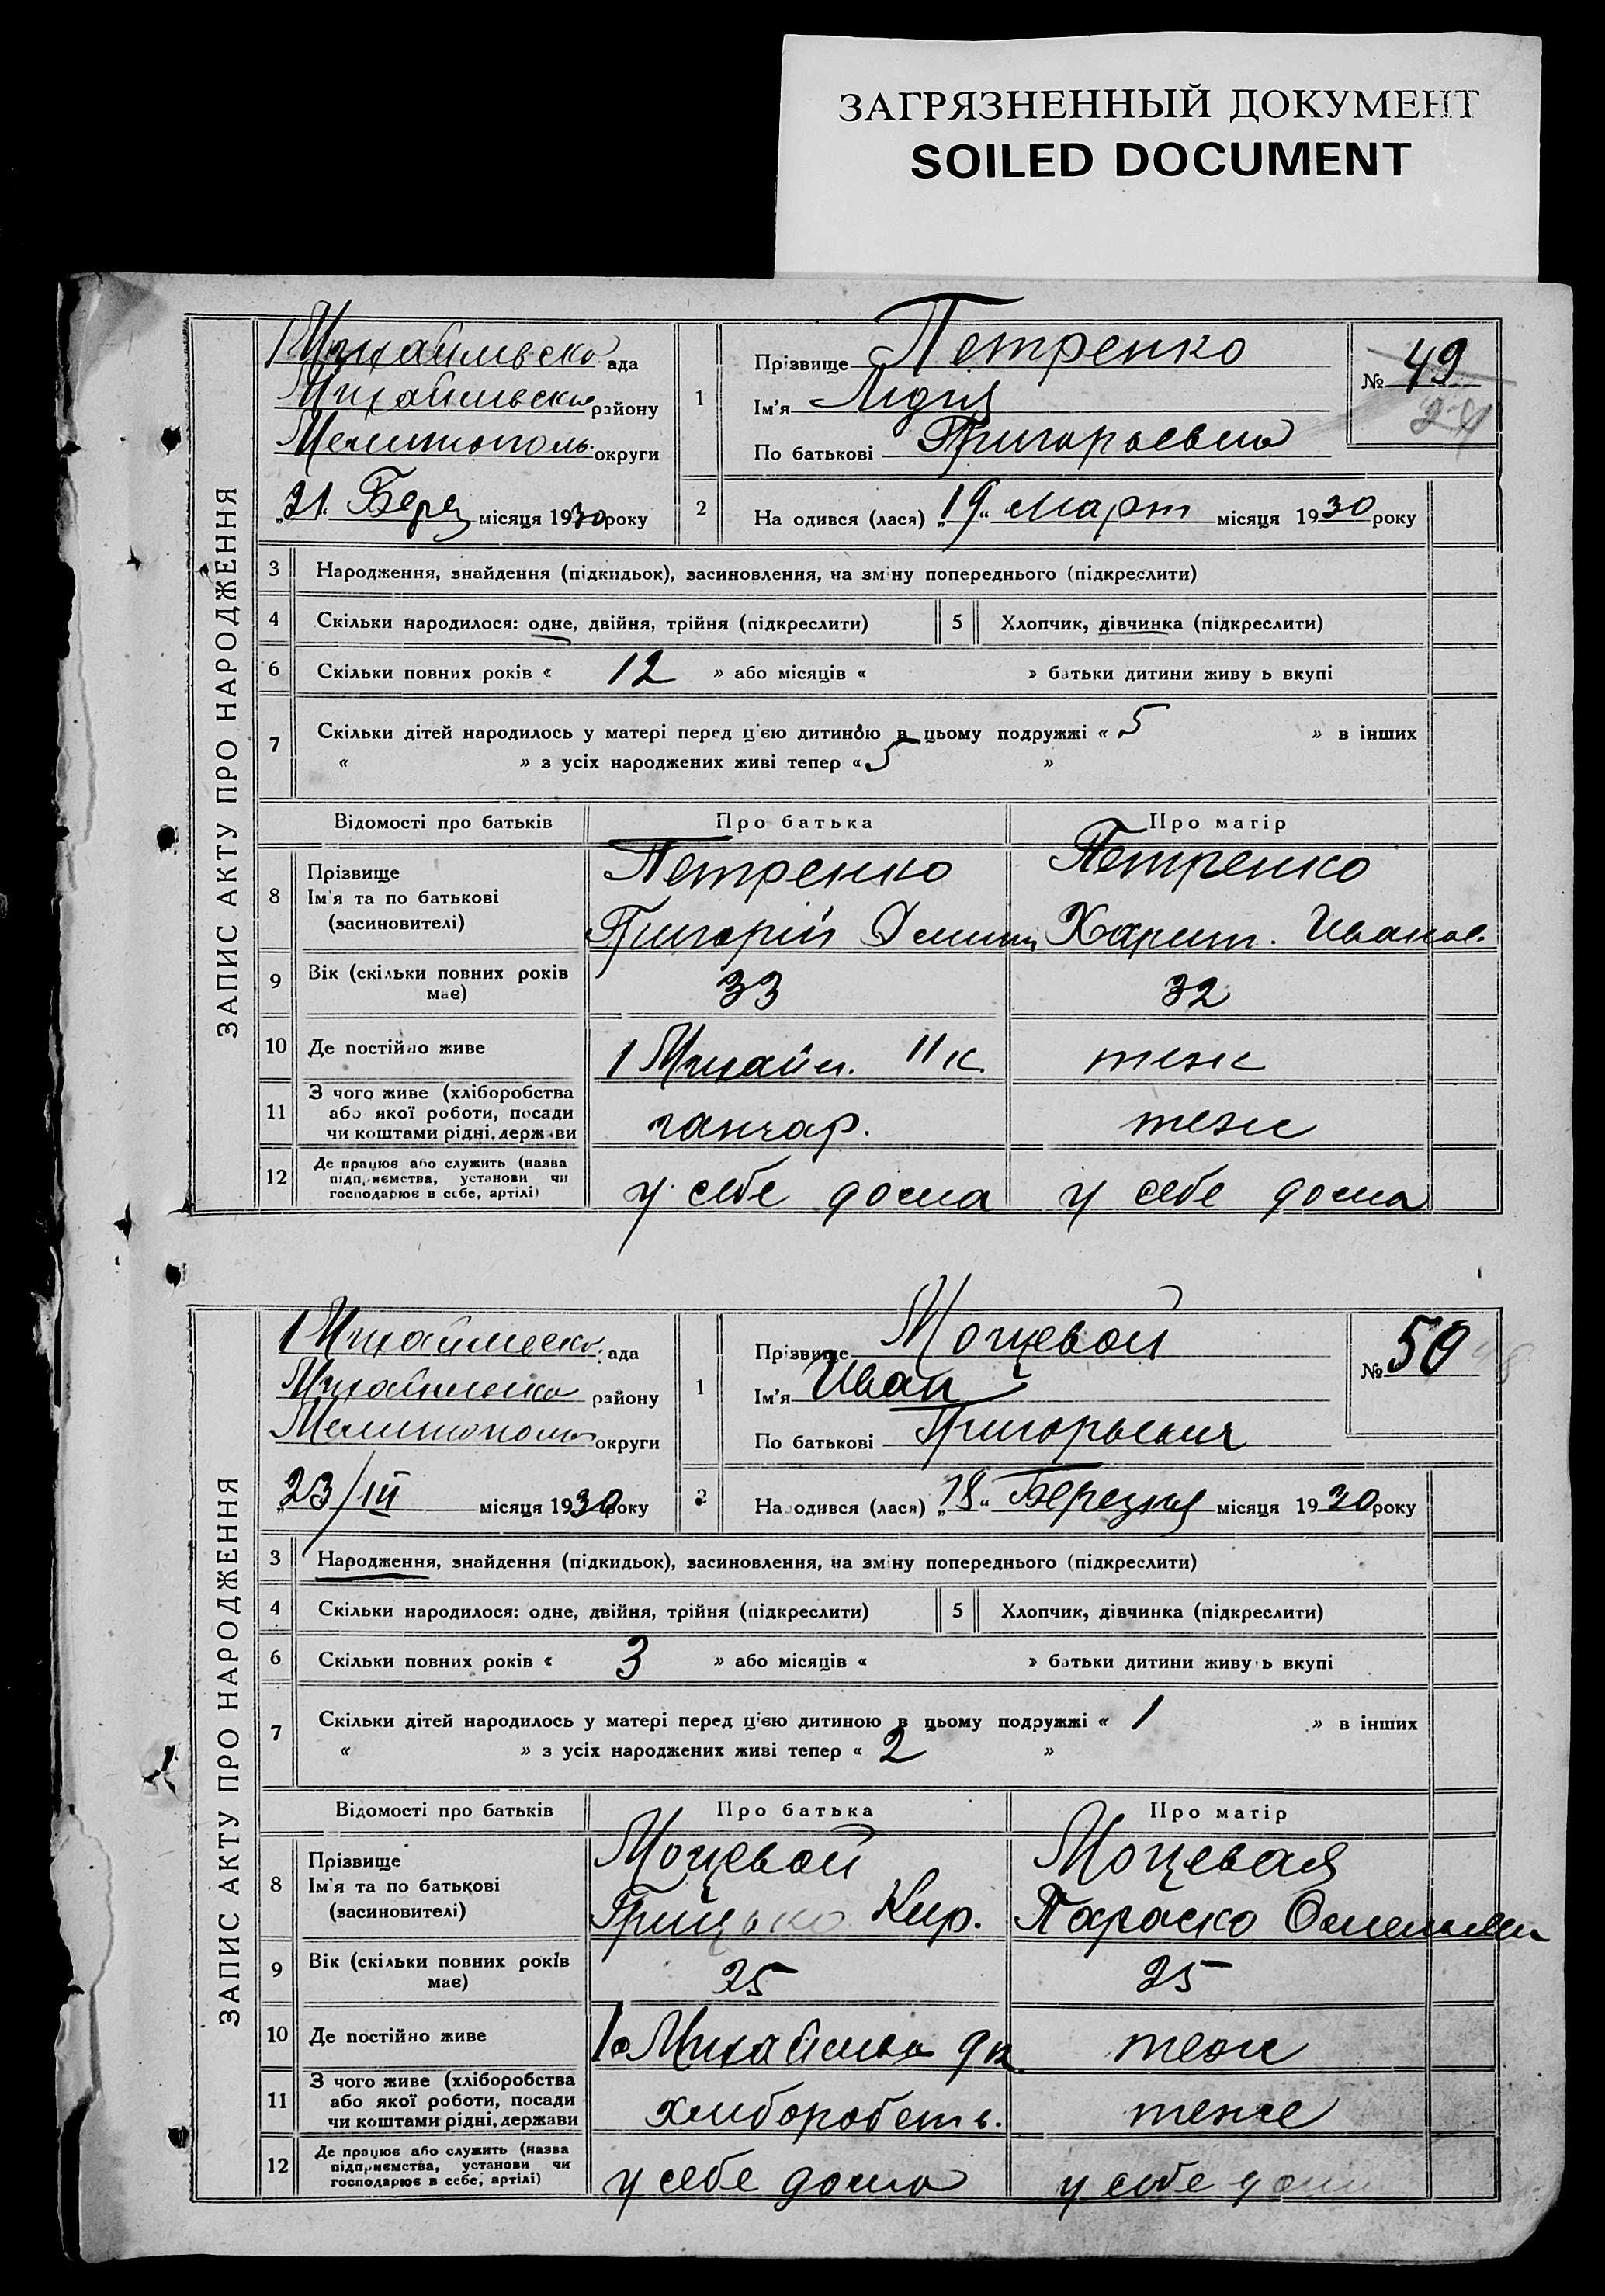 ЗАГРЯЗНЕННЫЙ ДОКУМЕНТ
SOILED DOCUMENT
ЗАПИС АКТУ ПРО НАРОДЖЕННЯ
1 Михайлвско ада
Михайлвско району
Мелитополь. округи
„21. Берез місяця 1930 року
1
Прізвище Петренко
Ім'я Лидия
По батькові Григорьевна
№ 49
24
2
На одився (лася) „19“ Март місяця 1930 року
3 Народження, знайдення (підкидьок), засиновлення, на зміну попереднього (підкреслити)
4 Скільки народилося: одне, двійня, трійня (підкреслити)
5 Хлопчик, дівчинка (підкреслити)
6 Скільки повних років « 12 » або місяців « » батьки дитини живу ь вкупі
7 Скільки дітей народилось у матері перед цією дитиною в цьому подружжі « 5 » в інших
« » з усіх народжених живі тепер « 5 »
Відомості про батьків Про батька Про матір
8 Прізвище
Ім'я та по батькові
(засновителі)
Петренко
Григорій
Петренко
Харит. Иванов.
9 Вік (скільки повних років має) 33 32
10 Де постійно живе 1 Михайл. 11 к теж
11 З чого живе (хліборобства
або якої роботи, посади
чи коштами рідні, держави
ганчар. теж
12 Де працює або служить (назва
підприємства, установи чи
господарює в себе, артілі)
у себе дома у себе дома
ЗАПИС АКТУ ПРО НАРОДЖЕННЯ
1 Михайлвско. ада
Михайлвско району
Мелитополь округи
„23/III місяця 1930 року
1
Прізвище Моцевой
Ім'я Иван
По батькові Григорьевич
№ 50
2
На одився (лася) „18“ Березня місяця 1930 року
3 Народження, знайдення (підкидьок), засиновлення, на зміну попереднього (підкреслити)
4 Скільки народилося: одне, двійня, трійня (підкреслити)
5 Хлопчик, дівчинка (підкреслити)
6 Скільки повних років « 3 » або місяців « » батьки дитини живу ь вкупі
7 Скільки дітей народилось у матері перед цією дитиною в цьому подружжі « 1 » в інших
« » з усіх народжених живі тепер « 2 »
Відомості про батьків Про батька Про матір
8 Прізвище
Ім'я та по батькові
(засиновителі)
Моцевой
Грицько Кир.
Моцевая
Параско
9 Вік (скільки повних років має) 25 25
10 Де постійно живе 1о Михайлвка 9 к теж
11 З чого живе (хліборобства
або якої роботи, посади
чи коштами рідні, держави
хлиборобств. теже
12 Де працює або служить (назва
підприємства, установи чи
господарює в себе, артілі)
у себе дома у себе дома